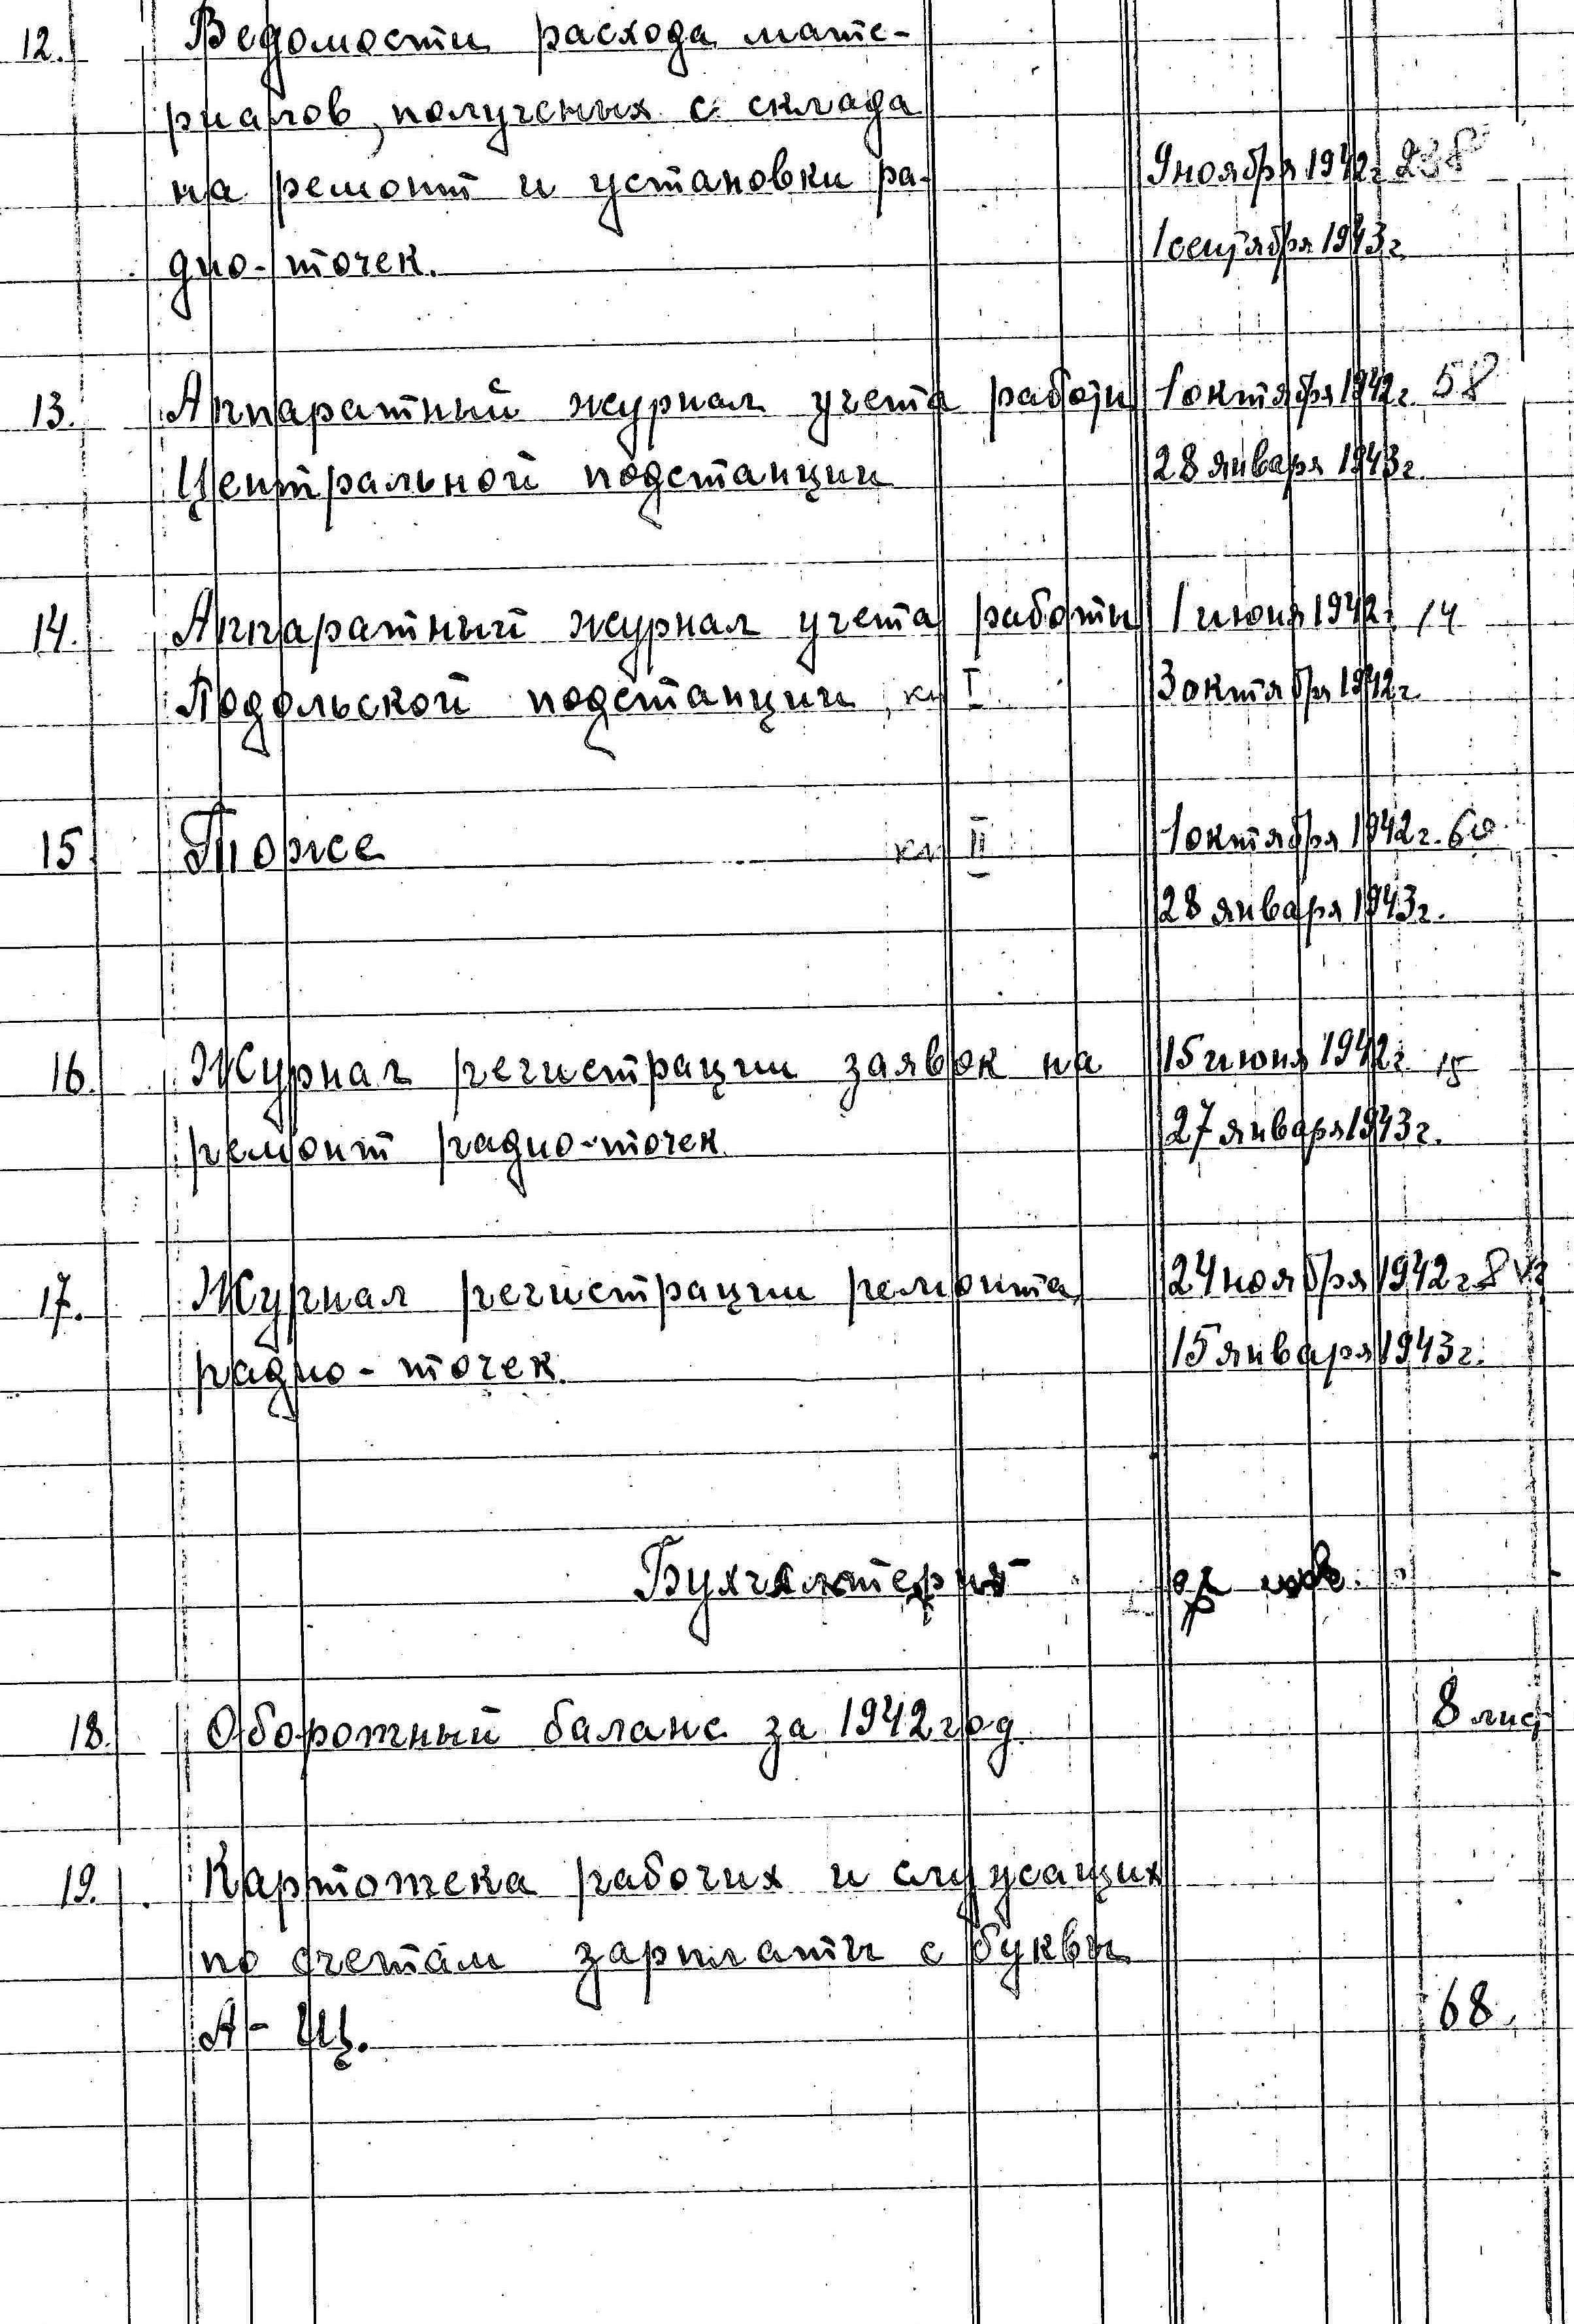 12. Ведомости расхода мате-
риалов, полученых с склада
на ремонт и установки ра- 9 ноября 1942г 238
дио-точек. 1 сентября 1943г.
13. Аппаратный журнал учета работы 1 октября 1942г. 58
Центральной подстанции 28 января 1943г.
14. Аппаратный журнал учета работы 1 июня 1942г. 14
Подольской подстанции, кн I 3 октября 1942г.
15. Тоже кн II 1 октября 1942г. 60
28 января 1943г.
16. Журнал регистрации заявок на 15 июня 1942г. 15
ремонт радио-точек 27 января 1943г.
17. Журнал регистрации ремонта 24 ноября 1942г. 8
радио-точек. 15 января 1943г.
Бухгалтерия
18. Оборотный баланс за 1942 год. 8 лис
19. Картотека рабочих и служащих
по счетам зарплаты с буквы
А - Щ. 68